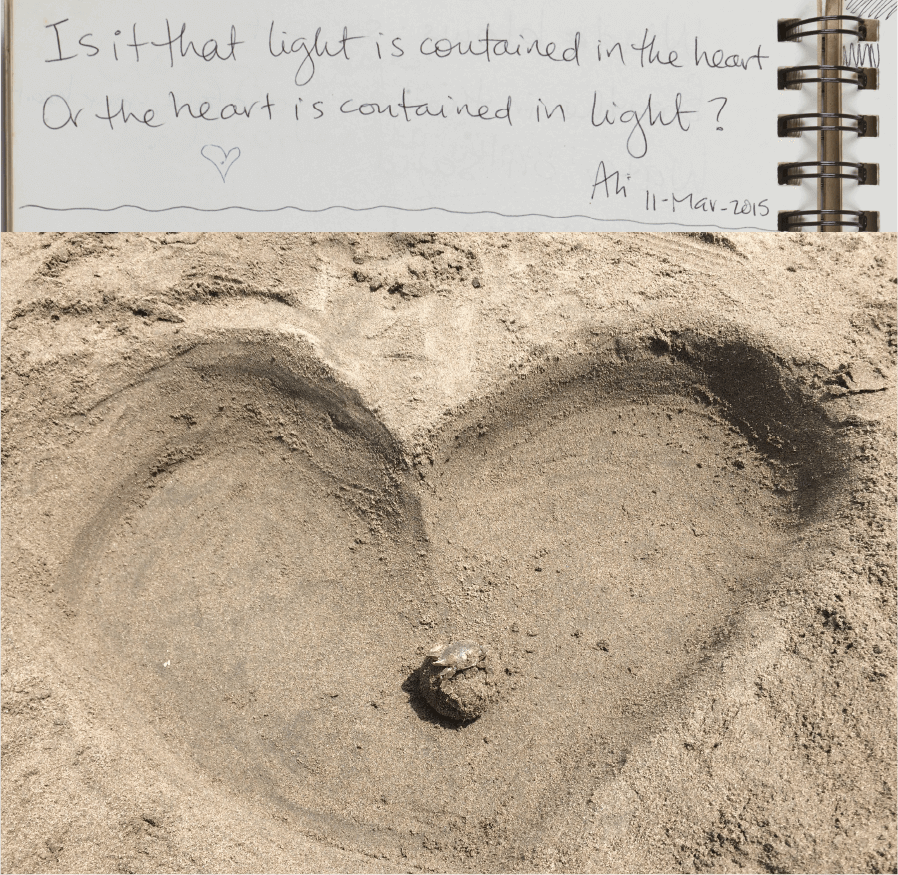 Is it that light is contained in the heart
Or the heart is contained in light?
Ali 11-Mar-2015